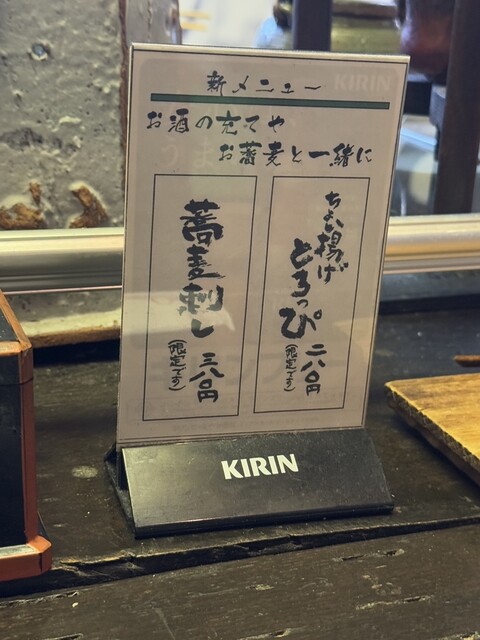 新メニュー
KIRIN
お酒の充てや
お蕎麦と一緒に
ちょい揚げ
とろっぴ
二八〇円
(限定です)
蕎麦刺し
三八〇円
(限定です)
KIRIN